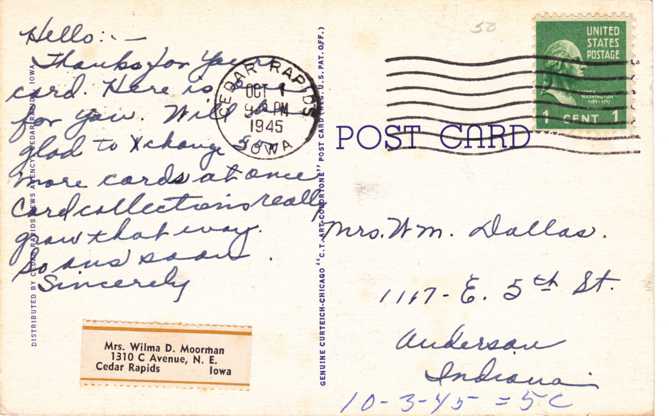 Hello:-
Thanks for your
card. Here is one
for you. Will be
glad to Xchange
more cards at once
Card collections really
grow that way.
So ans soon.
Sincerely
Mrs. Wilma D. Moorman
1310 C Avenue, N. E.
Cedar Rapids Iowa
DISTRIBUTED BY CEDAR RAPIDS NEWS AGENCY, CEDAR RAPIDS, IOWA
GENUINE CURTEICH-CHICAGO "C.T. ART-COLORTONE" POST CARD (REG. U.S. PAT. OFF.)
CEDAR RAPIDS
OCT 1
PM
1945
IOWA
50
UNITED
STATES
POSTAGE
WASHINGTON
1 CENT 1
POST CARD
Mrs. Wm. Dallas.
1117-E. 5th St.
Anderson
Indiana
10-3-45 = 5C